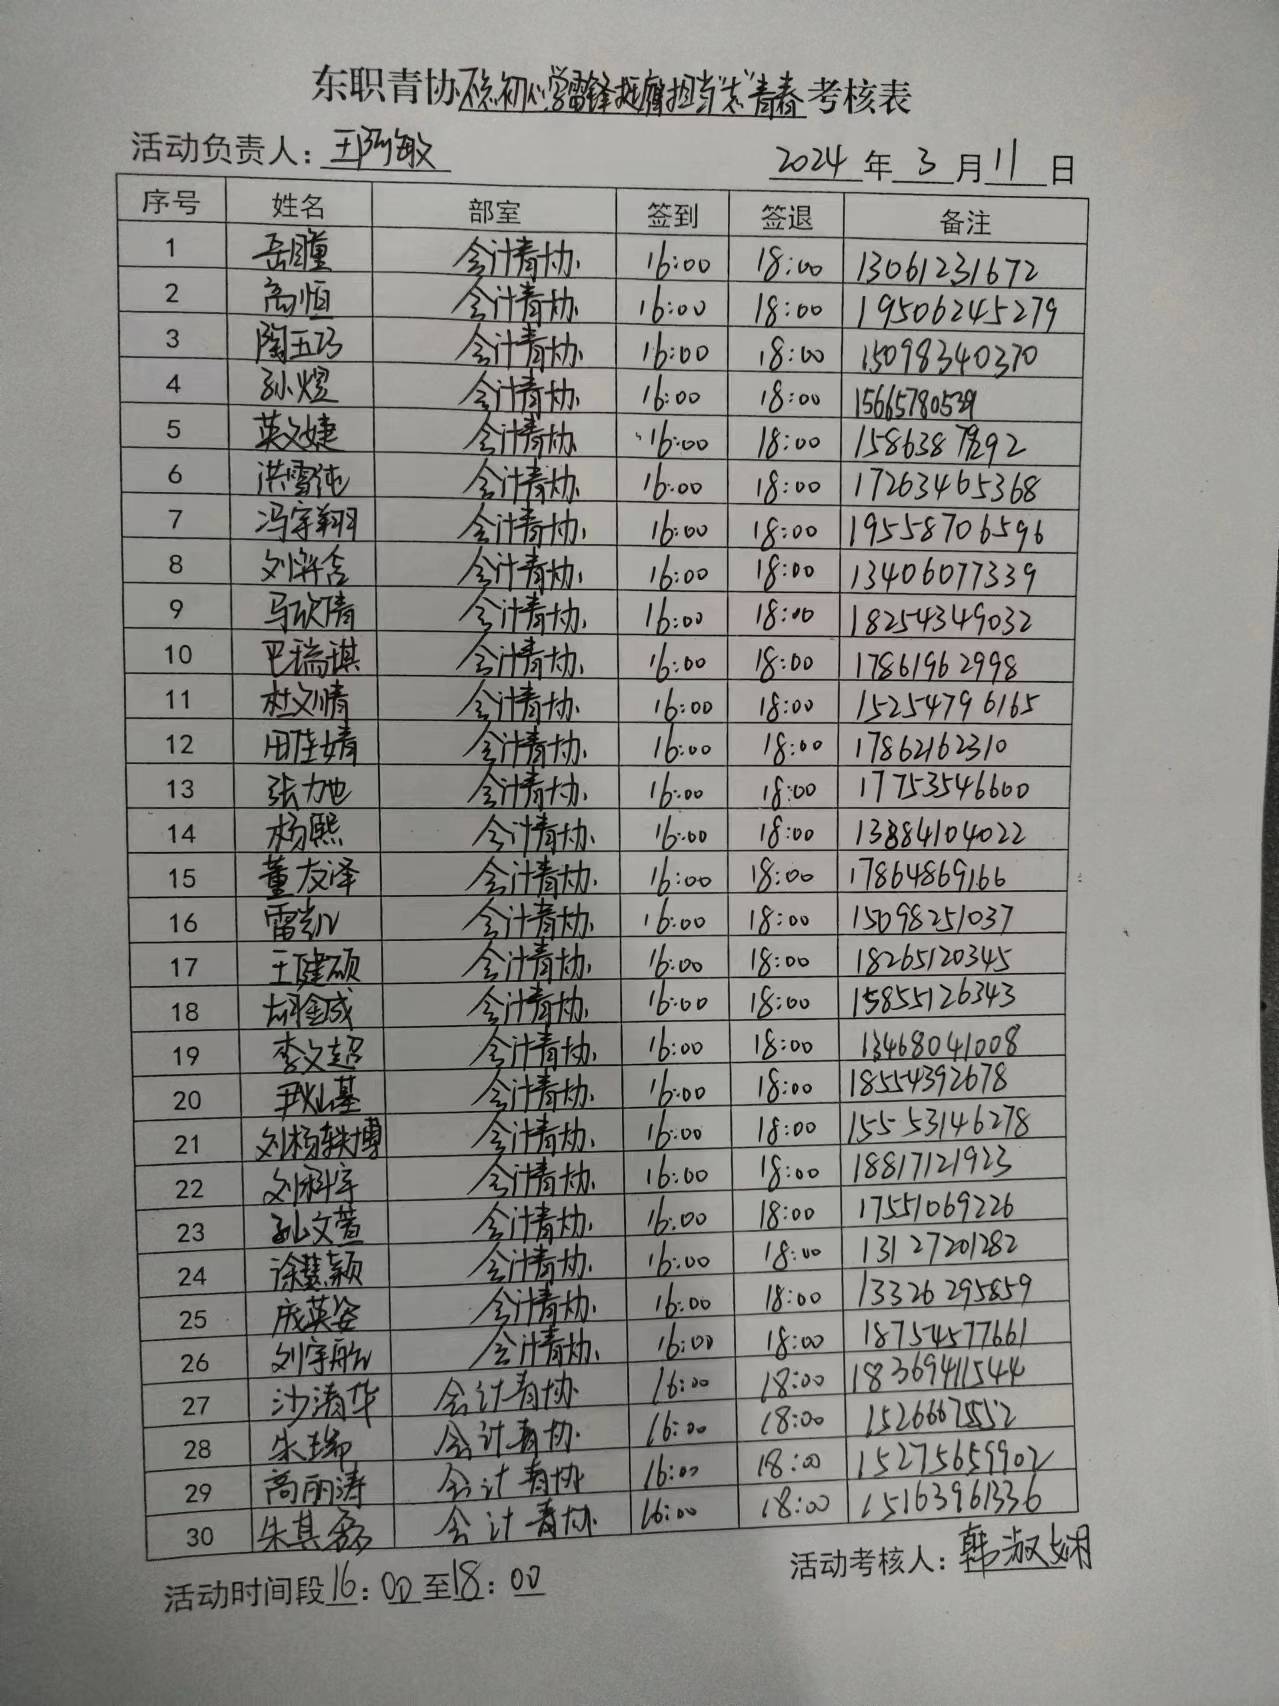 东职青协不忘初心学雷锋 抚膺担当"志"青春考核表
活动负责人：王珂敏 2024年3月11日
序号 姓名 部室 签到 签退 备注
1 岳瞳 会计青协 16:00 18:00 13061231672
2 高恒 会计青协 16:00 18:00 19506245279
3 陶五巧 会计青协 16:00 18:00 15098340370
4 孙煜 会计青协 16:00 18:00 15665780539
5 英文婕 会计青协 16:00 18:00
6 洪雪纯 会计青协 16:00 18:00 17263465368
7 冯宇翔 会计青协 16:00 18:00 19558706596
8 会计青协 16:00 18:00 13406077339
9 马欣倩 会计青协 16:00 18:00 18254349032
10 巴瑞琪 会计青协 16:00 18:00 17861962998
11 杜文倩 会计青协 16:00 18:00 15254796165
12 田佳婧 会计青协 16:00 18:00 17862162310
13 张力也 会计青协 16:00 18:00 17753546600
14 杨熙 会计青协 16:00 18:00 13884104022
15 董友泽 会计青协 16:00 18:00 17864869166
16 雷凯 会计青协 16:00 18:00 15098251037
17 王健硕 会计青协 16:00 18:00 18265120345
18 胡金成 会计青协 16:00 18:00 15855126343
19 李文超 会计青协 16:00 18:00 13468041008
20 会计青协 16:00 18:00 18554392678
21 刘杨轶博 会计青协 16:00 18:00 15553146278
22 刘科宇 会计青协 16:00 18:00 18817121923
23 孙文萱 会计青协 16:00 18:00 17551069226
24 涂慧颖 会计青协 16:00 18:00 13127201282
25 庞英姿 会计青协 16:00 18:00 13326295859
26 刘宇航 会计青协 16:00 18:00 18754577661
27 沙清华 会计青协 16:00 18:00 18369411544
28 朱瑞 会计青协 16:00 18:00
29 高丽涛 会计青协 16:00 18:00 15275659902
30 朱其磊 会计青协 16:00 18:00 15163961336
活动时间段16：00至18：00 活动考核人：韩淑娴